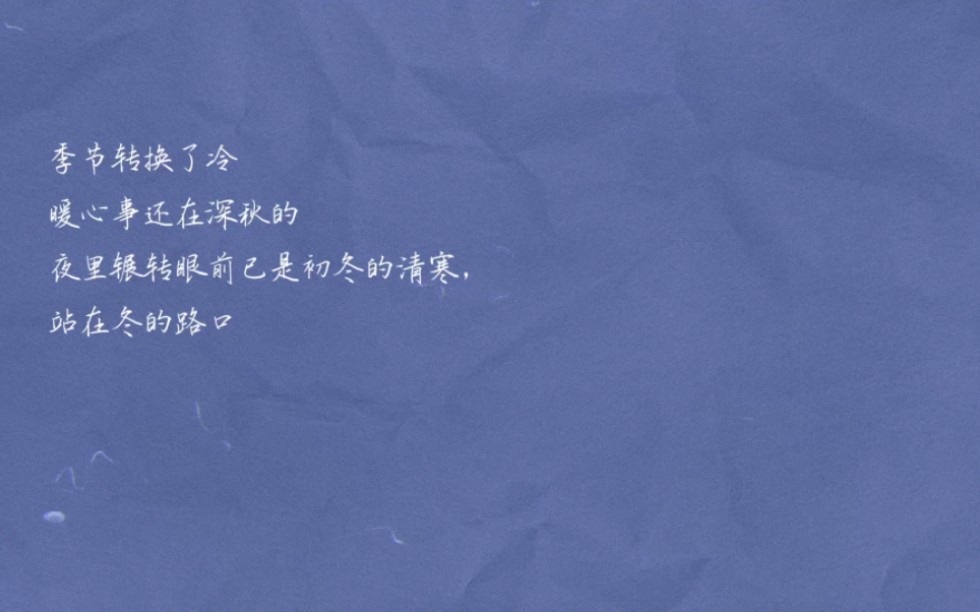 季节转换了冷
暖心事还在深秋的
夜里辗转眼前已是初冬的清寒，
站在冬的路口